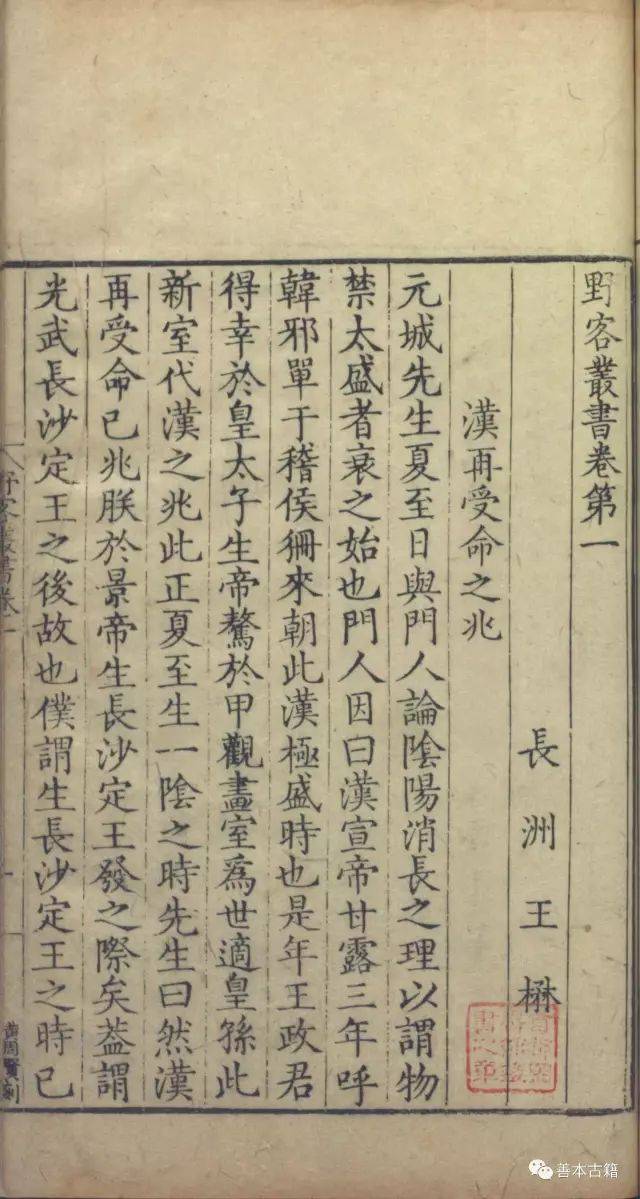 野客叢書卷第一
長洲王楙
漢再受命之兆
元城先生夏至日與門人論陰陽消長之理以謂物
禁太盛者衰之始也門人因曰漢宣帝甘露三年呼
韓邪單于稽侯狦來朝此漢極盛時也是年王政君
得幸於皇太子生帝驁於甲觀畫室為世適皇孫此
新室代漢之兆此正夏至生一陰之時先生曰然漢
再受命已兆朕於景帝生長沙定王發之際矣葢謂
光武長沙定王之後故也僕謂生長沙定王之時已
野客叢書卷一
黃周賢刻
善本古籍